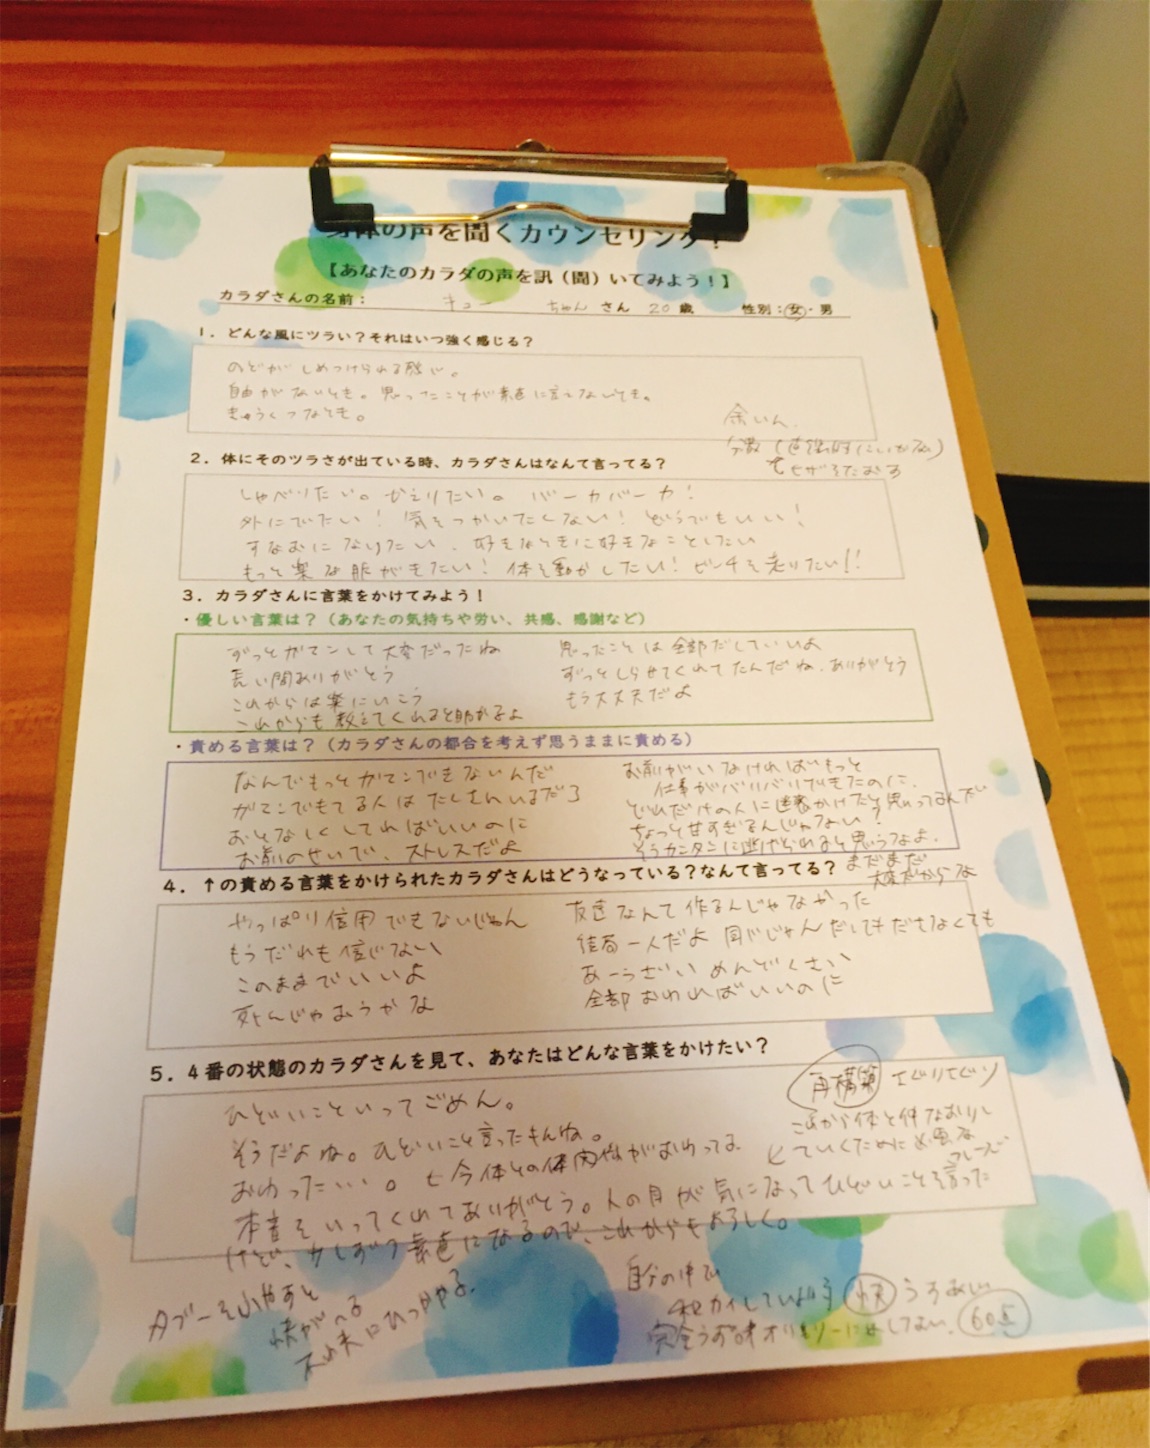 身体の声を聞くカウンセリング！
【あなたのカラダの声を訊（聞）いてみよう！】
カラダさんの名前： キュー ちゃん さん 20 歳 性別：女・男
1．どんな風にツラい？それはいつ強く感じる？
のどがしめつけられる感じ。
自由がないとき。思ったことが素直に言えないとき。
きゅうくつなとき。
2．体にそのツラさが出ている時、カラダさんはなんて言ってる？
しゃべりたい。かえりたい。バーカバーカ！
外にでたい！気をつかいたくない！どうでもいい！
すなおになりたい、好きなときに好きなことしたい
もっと楽な服がきたい！体を動かしたい！ビーチを走りたい!!
3．カラダさんに言葉をかけてみよう！
・優しい言葉は？（あなたの気持ちや労い、共感、感謝など）
ずっとガマンして大変だったね
長い間ありがとう
これからは楽にいこう
これからも教えてくれると助かるよ
思ったことは全部だしていいよ
ずっとしらせてくれてたんだね、ありがとう
もう大丈夫だよ
・責める言葉は？（カラダさんの都合を考えず思うままに責める）
なんでもっとガマンできないんだ
ガマンできてる人はたくさんいるだろ
おとなしくしてればいいのに
お前のせいで、ストレスだよ
お前がいなければもっと
仕事がバリバリできたのに、
どれだけの人に迷惑かけたと思ってるんだい
ちょっと甘すぎるんじゃない？
そうカンタンに逃げられると思うなよ、
まだまだ
大変だからな
4．↑の責める言葉をかけられたカラダさんはどうなっている？なんて言ってる？
やっぱり信用できないじゃん
もうだれも信じない
このままでいいよ
死んじゃおうかな
友達なんて作るんじゃなかった
結局一人だよ 同じじゃん だしてもださなくても
あーうざい めんどくさい
全部おわればいいのに
5．4番の状態のカラダさんを見て、あなたはどんな言葉をかけたい？
ひどいこといってごめん。
そうだよね。ひどいこと言ったもんね。
おわったい…。
本音をいってくれてありがとう。人の目が気になってひどいことを言った
けど、少しずつ素直になるので、これからもよろしく。
再構築
これから体と仲なおりし
ていくために必要な
フレーズ
タブーを
自分の中で
60点